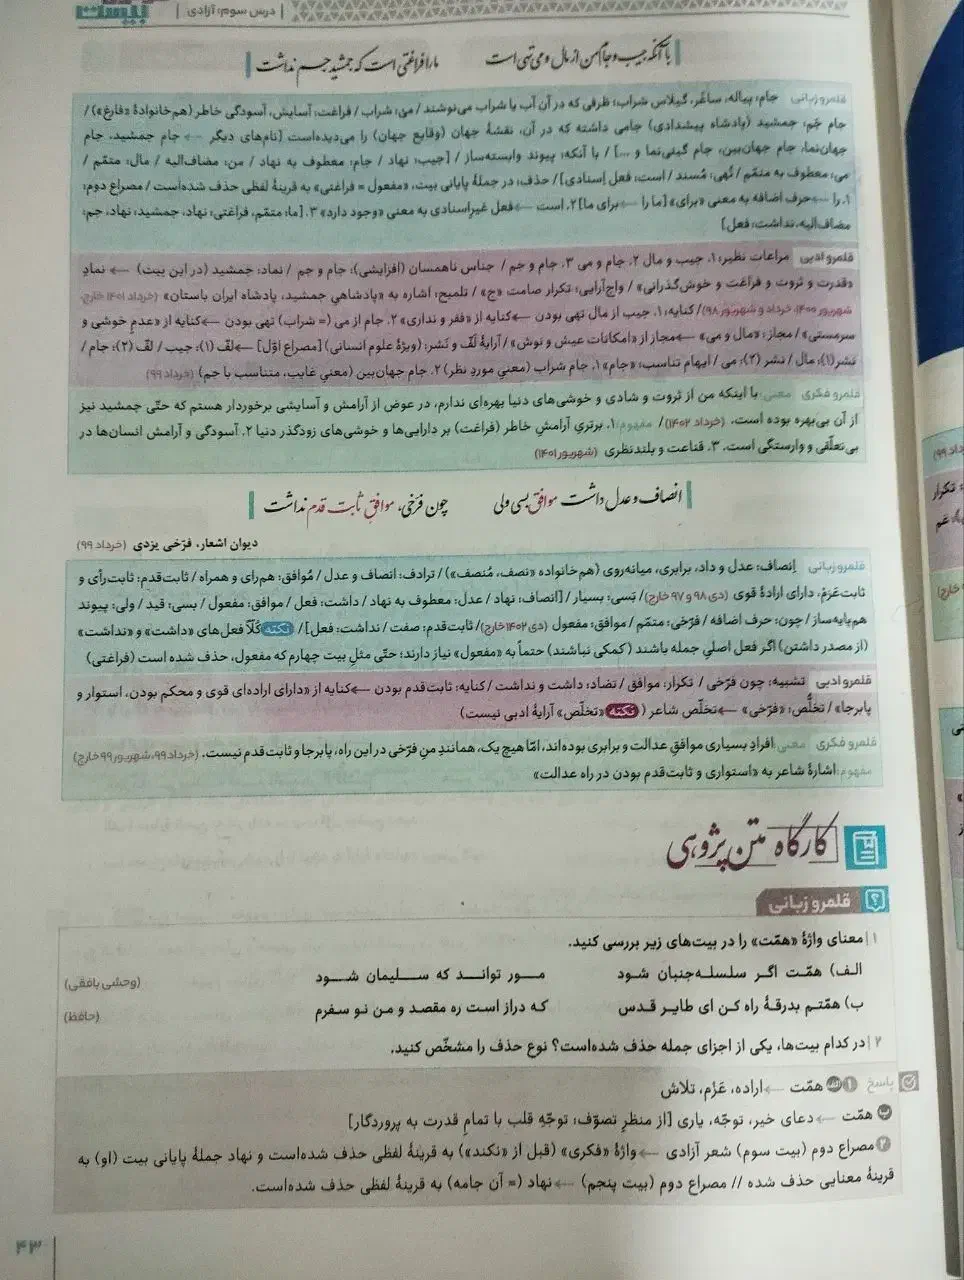 درس سوم: آزادی
با آنکه جیب و جام من از مال و می تهی است
ما را فراغتی است که جمشید جم نداشت
قلمرو زبانی جام: پیاله، ساغر، گیلاس شراب؛ ظرفی که در آن آب یا شراب می‌نوشند / می: شراب / فراغت: آسایش، آسودگی خاطر (هم‌خانوادهٔ «فارغ») /
جام جَم: جمشید (پادشاه پیشدادی) جامی داشته که در آن، نقشهٔ جهان (وقایع جهان) را می‌دیده‌است [نام‌های دیگر ← جام جمشید، جام
جهان‌نما، جام جهان‌بین، جام گیتی‌نما و ...] / با آنکه: پیوند وابسته‌ساز / [جیب: نهاد / جام: معطوف به نهاد / من: مضاف‌الیه / مال: متمّم /
می: معطوف به متمّم / تُهی: مُسند / است: فعل اِسنادی] / حذف: در جملهٔ پایانی بیت، «مفعول = فراغتی» به قرینهٔ لفظی حذف شده‌است / مصراع دوم:
۱. را ← حرف اضافه به معنی «برای» [ما را ← برای ما] ۲. است ← فعل غیرِاِسنادی به معنی «وجود دارد» ۳. [ما: متمّم، فراغتی: نهاد، جمشید: نهاد، جم:
مضاف‌الیه، نداشت: فعل]
قلمرو ادبی مراعات نظیر: ۱. جیب و مال ۲. جام و می ۳. جام و جم / جناس ناهمسان (افزایشی): جام و جم / نماد: جمشید (در این بیت) ← نمادِ
«قدرت و ثروت و فراغت و خوش‌گذرانی» / واج‌آرایی: تکرار صامت «ج» / تلمیح: اشاره به «پادشاهیِ جمشید، پادشاه ایران باستان» (خرداد ۱۴۰۱ خارج،
شهریور ۱۴۰۰، خرداد و شهریور ۹۸) / کنایه: ۱. جیب از مال تهی بودن ← کنایه از «فقر و نداری» ۲. جام از می (= شراب) تهی بودن ← کنایه از «عدمِ خوشی و
سرمستی» / مجاز: «مال و می» ← مجاز از «امکانات عیش و نوش» / آرایهٔ لَفّ و نَشر: (ویژهٔ علوم انسانی) [مصراع اوّل] ← لفّ (۱): جیب / لفّ (۲): جام /
نشر (۱): مال / نشر (۲): می / ایهام تناسب: «جام» ۱. جام شراب (معنیِ موردِ نظر) ۲. جام جهان‌بین (معنیِ غایب، متناسب با جم) (خرداد ۹۹)
قلمرو فکری معنی: با اینکه من از ثروت و شادی و خوشی‌های دنیا بهره‌ای ندارم، در عوض از آرامش و آسایشی برخوردار هستم که حتّی جمشید نیز
از آن بی‌بهره بوده است. (خرداد ۱۴۰۲) / مفهوم: ۱. برتریِ آرامشِ خاطر (فراغت) بر دارایی‌ها و خوشی‌های زودگذر دنیا ۲. آسودگی و آرامش انسان‌ها در
بی‌تعلّقی و وارستگی است. ۳. قناعت و بلندنظری (شهریور ۱۴۰۱)
انصاف و عدل داشت موافق بسی ولی
چون فرّخی، موافقِ ثابت قدم نداشت
دیوان اشعار، فرّخی یزدی (خرداد ۹۹)
قلمرو زبانی اِنصاف: عدل و داد، برابری، میانه‌روی (هم‌خانواده «نصف، مُنصف») / ترادف: انصاف و عدل / مُوافق: هم‌رای و همراه / ثابت‌قدم: ثابت‌رأی و
ثابت‌عَزم، دارای ارادهٔ قوی (دی ۹۸ و ۹۷ خارج) / بَسی: بسیار / [انصاف: نهاد / عدل: معطوف به نهاد / داشت: فعل / موافق: مفعول / بسی: قید / ولی: پیوند
هم‌پایه‌ساز / چون: حرف اضافه / فرّخی: متمّم / موافق: مفعول (دی ۱۴۰۲ خارج) / ثابت‌قدم: صفت / نداشت: فعل] / نکته کُلّاً فعل‌های «داشت» و «نداشت»
(از مصدر داشتن) اگر فعل اصلیِ جمله باشند (کمکی نباشند) حتماً به «مفعول» نیاز دارند؛ حتّی مثلِ بیت چهارم که مفعول، حذف شده است (فراغتی)
قلمرو ادبی تشبیه: چون فرّخی / تکرار: موافق / تضاد: داشت و نداشت / کنایه: ثابت‌قدم بودن ← کنایه از «دارای اراده‌ای قوی و محکم بودن، استوار و
پابرجا» / تخلّص: «فرّخی» ← تخلّص شاعر (نکته «تخلّص» آرایهٔ ادبی نیست)
قلمرو فکری معنی: افرادِ بسیاری موافقِ عدالت و برابری بوده‌اند، امّا هیچ یک، همانندِ منِ فرّخی در این راه، پابرجا و ثابت‌قدم نیست. (خرداد ۹۹، شهریور ۹۹ خارج)
مفهوم: اشارهٔ شاعر به «استواری و ثابت‌قدم بودن در راه عدالت»
کارگاه متن پژوهی
قلمرو زبانی
۱ | معنای واژهٔ «همّت» را در بیت‌های زیر بررسی کنید.
الف) همّت اگر سلسله‌جنبان شود مور تواند که سلیمان شود (وحشی بافقی)
ب) همّتم بدرقهٔ راه کن ای طایر قدس که دراز است ره مقصد و من نو سفرم (حافظ)
۲ | در کدام بیت‌ها، یکی از اجزای جمله حذف شده‌است؟ نوع حذف را مشخّص کنید.
پاسخ ۱ الف همّت ← اراده، عَزم، تلاش
ب همّت ← دعای خیر، توجّه، یاری [از منظرِ تصوّف: توجّهِ قلب با تمامِ قدرت به پروردگار]
۲ مصراع دوم (بیت سوم) شعر آزادی ← واژهٔ «فکری» (قبل از «نکند») به قرینهٔ لفظی حذف شده‌است و نهاد جملهٔ پایانی بیت (او) به
قرینهٔ معنایی حذف شده // مصراع دوم (بیت پنجم) ← نهاد (= آن جامه) به قرینهٔ لفظی حذف شده‌است.
۴۳